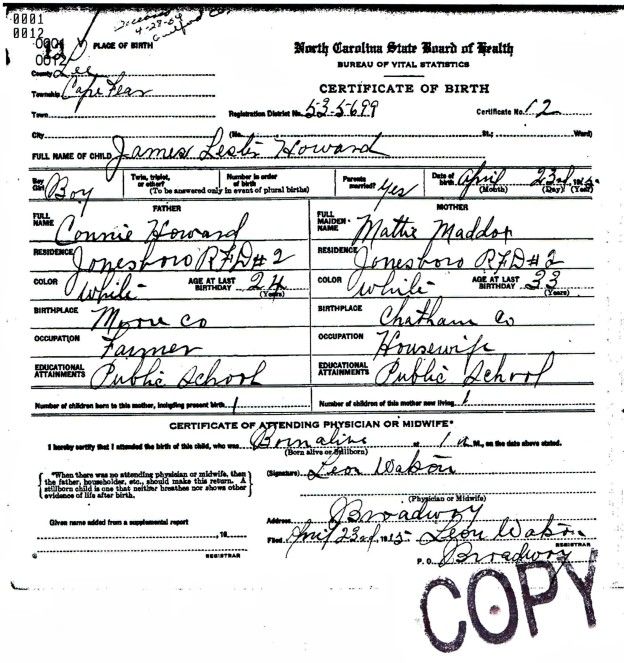 0001
0012
Deceased
4-28-64
Guilford Co
0001
0012
PLACE OF BIRTH
North Carolina State Board of Health
BUREAU OF VITAL STATISTICS
CERTIFICATE OF BIRTH
County Lee
Township Cape Fear
Town
Registration District No. 53-5-699 Certificate No. 12
City (No. St.; Ward)
FULL NAME OF CHILD James Leslie Howard
Boy Girl Boy Twin, triplet, or other? Number in order of birth (To be answered only in event of plural births) Parents married? Yes Date of birth April 23rd, 1915
(Month) (Day) (Year)
FATHER MOTHER
FULL NAME Connie Howard FULL MAIDEN NAME Mattie Maddox
RESIDENCE Jonesboro RFD #2 RESIDENCE Jonesboro RFD #2
COLOR White AGE AT LAST BIRTHDAY 24 (Years) COLOR White AGE AT LAST BIRTHDAY 33 (Years)
BIRTHPLACE Moore Co BIRTHPLACE Chatham Co
OCCUPATION Farmer OCCUPATION Housewife
EDUCATIONAL ATTAINMENTS Public School EDUCATIONAL ATTAINMENTS Public School
Number of children born to this mother, including present birth 1 Number of children of this mother now living 1
CERTIFICATE OF ATTENDING PHYSICIAN OR MIDWIFE*
I hereby certify that I attended the birth of this child, who was Born alive at 1 a. M., on the date above stated.
(Born alive or Stillborn)
*When there was no attending physician or midwife, then
the father, householder, etc., should make this return. A
stillborn child is one that neither breathes nor shows other
evidence of life after birth.
(Signature) Leon Watson
(Physician or Midwife)
Given name added from a supplemental report
, 19
REGISTRAR
Address Broadway
Filed April 23rd, 1915 Leon Watson
REGISTRAR
P. O. Broadway
COPY